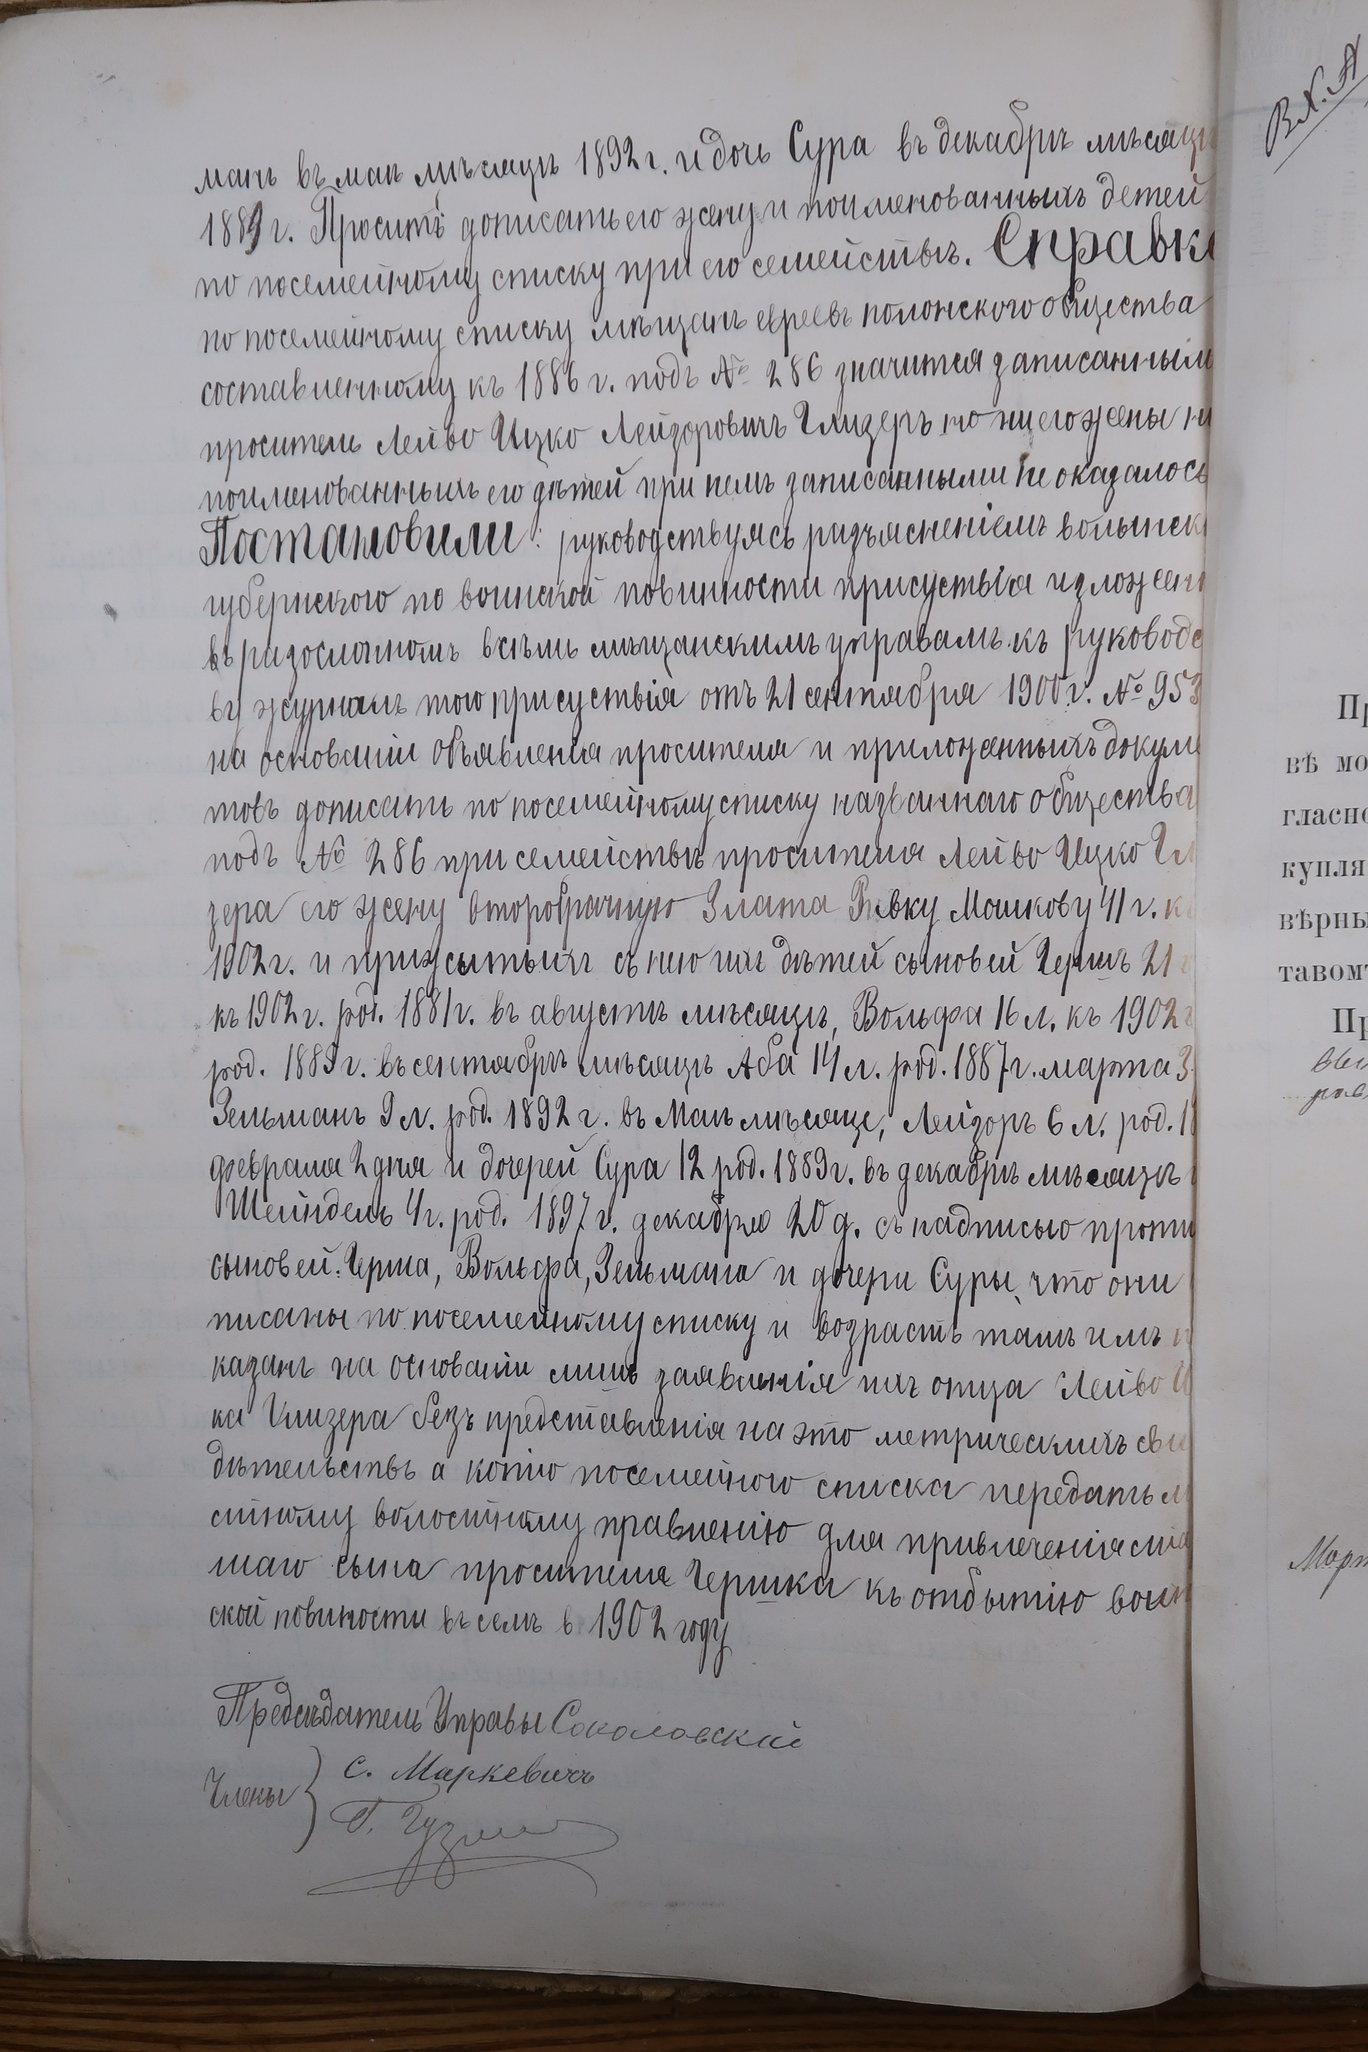 манъ въ маѣ мѣсяцѣ 1892 г. и дочь Сура въ декабрѣ мѣсяцѣ
1889 г. Проситъ дописать его жену и поименованныхъ детей
по посемейному списку при его семействѣ. Справка
по посемейному списку мѣщанъ евреевъ полонского общества
составленному къ 1886 г. подъ № 286 значится записаннымъ
проситель Лейво Ицко Лейзоровичъ Глизеръ но ни его жены ни
поименованныхъ его дѣтей при немъ записанными не оказалось
Постановили: руководствуясь разъясненіемъ волынск
губернского по воинской повинности присуствія изложен
въ разосланномъ всѣмъ мѣщанскимъ управамъ къ руководс
ву журналѣ того присуствія отъ 21 сентября 1900 г. № 953
на основаніи объявленія просителя и приложенныхъ докуме
товъ дописать по посемейному списку названнаго общества
подъ № 286 при семействѣ просителя Лейво Ицко Гл
зера его жену второбрачную Злата Ривку Мошкову 41 г. къ
1902 г. и прижытыхъ съ нею ихъ дѣтей сыновей Гершъ 21 г
къ 1902 г. род. 1881 г. въ августѣ мѣсяцѣ, Вольфа 16 л. къ 1902 г
род. 1885 г. въ сентябрѣ мѣсяцѣ Аба 14 л. род. 1887 г. марта 3
Зельманъ 9 л. род. 1892 г. въ Маѣ мѣсяце, Лейзоръ 6 л. род. 18
февраля 2 дня и дочерей Сура 12 род. 1889 г. въ декабрѣ мѣсяцѣ
Шейндель 4 г. род. 1897 г. декабря 20 д. съ надписью проти
сыновей: Герша, Вольфа, Зельмана и дочери Суры, что они
писаны по посемейному списку и возрастъ тамъ имъ
казанъ на основаніи лишь заявленія ихъ отца Лейво И
ка Глизера безъ представленія на это метрическихъ сви
дѣтельствъ а копію посемейного списка передать м
стному волостному правленію для привлеченія ста
шаго сына просителя Гершка къ отбытію воин
ской повиности въ семъ в 1902 году
Предсѣдатель Управы Соколовскій
Члены
С. Маркевичъ
Г. Гузман
ВХ. №
Пр
вѣ мо
гласно
купля
вѣрны
тавомъ
Пр
Март